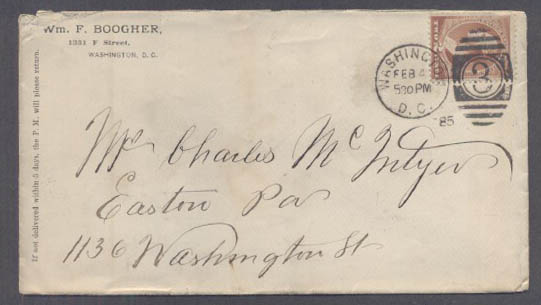 Wm. F. BOOGHER,
1331 F Street,
WASHINGTON, D. C.
If not delivered within 5 days, the P. M. will please return.
WASHING
FEB 4
530 PM
D. C.
'85
3
Mr Charles McIntyer
Easton Pa
1136 Washington St